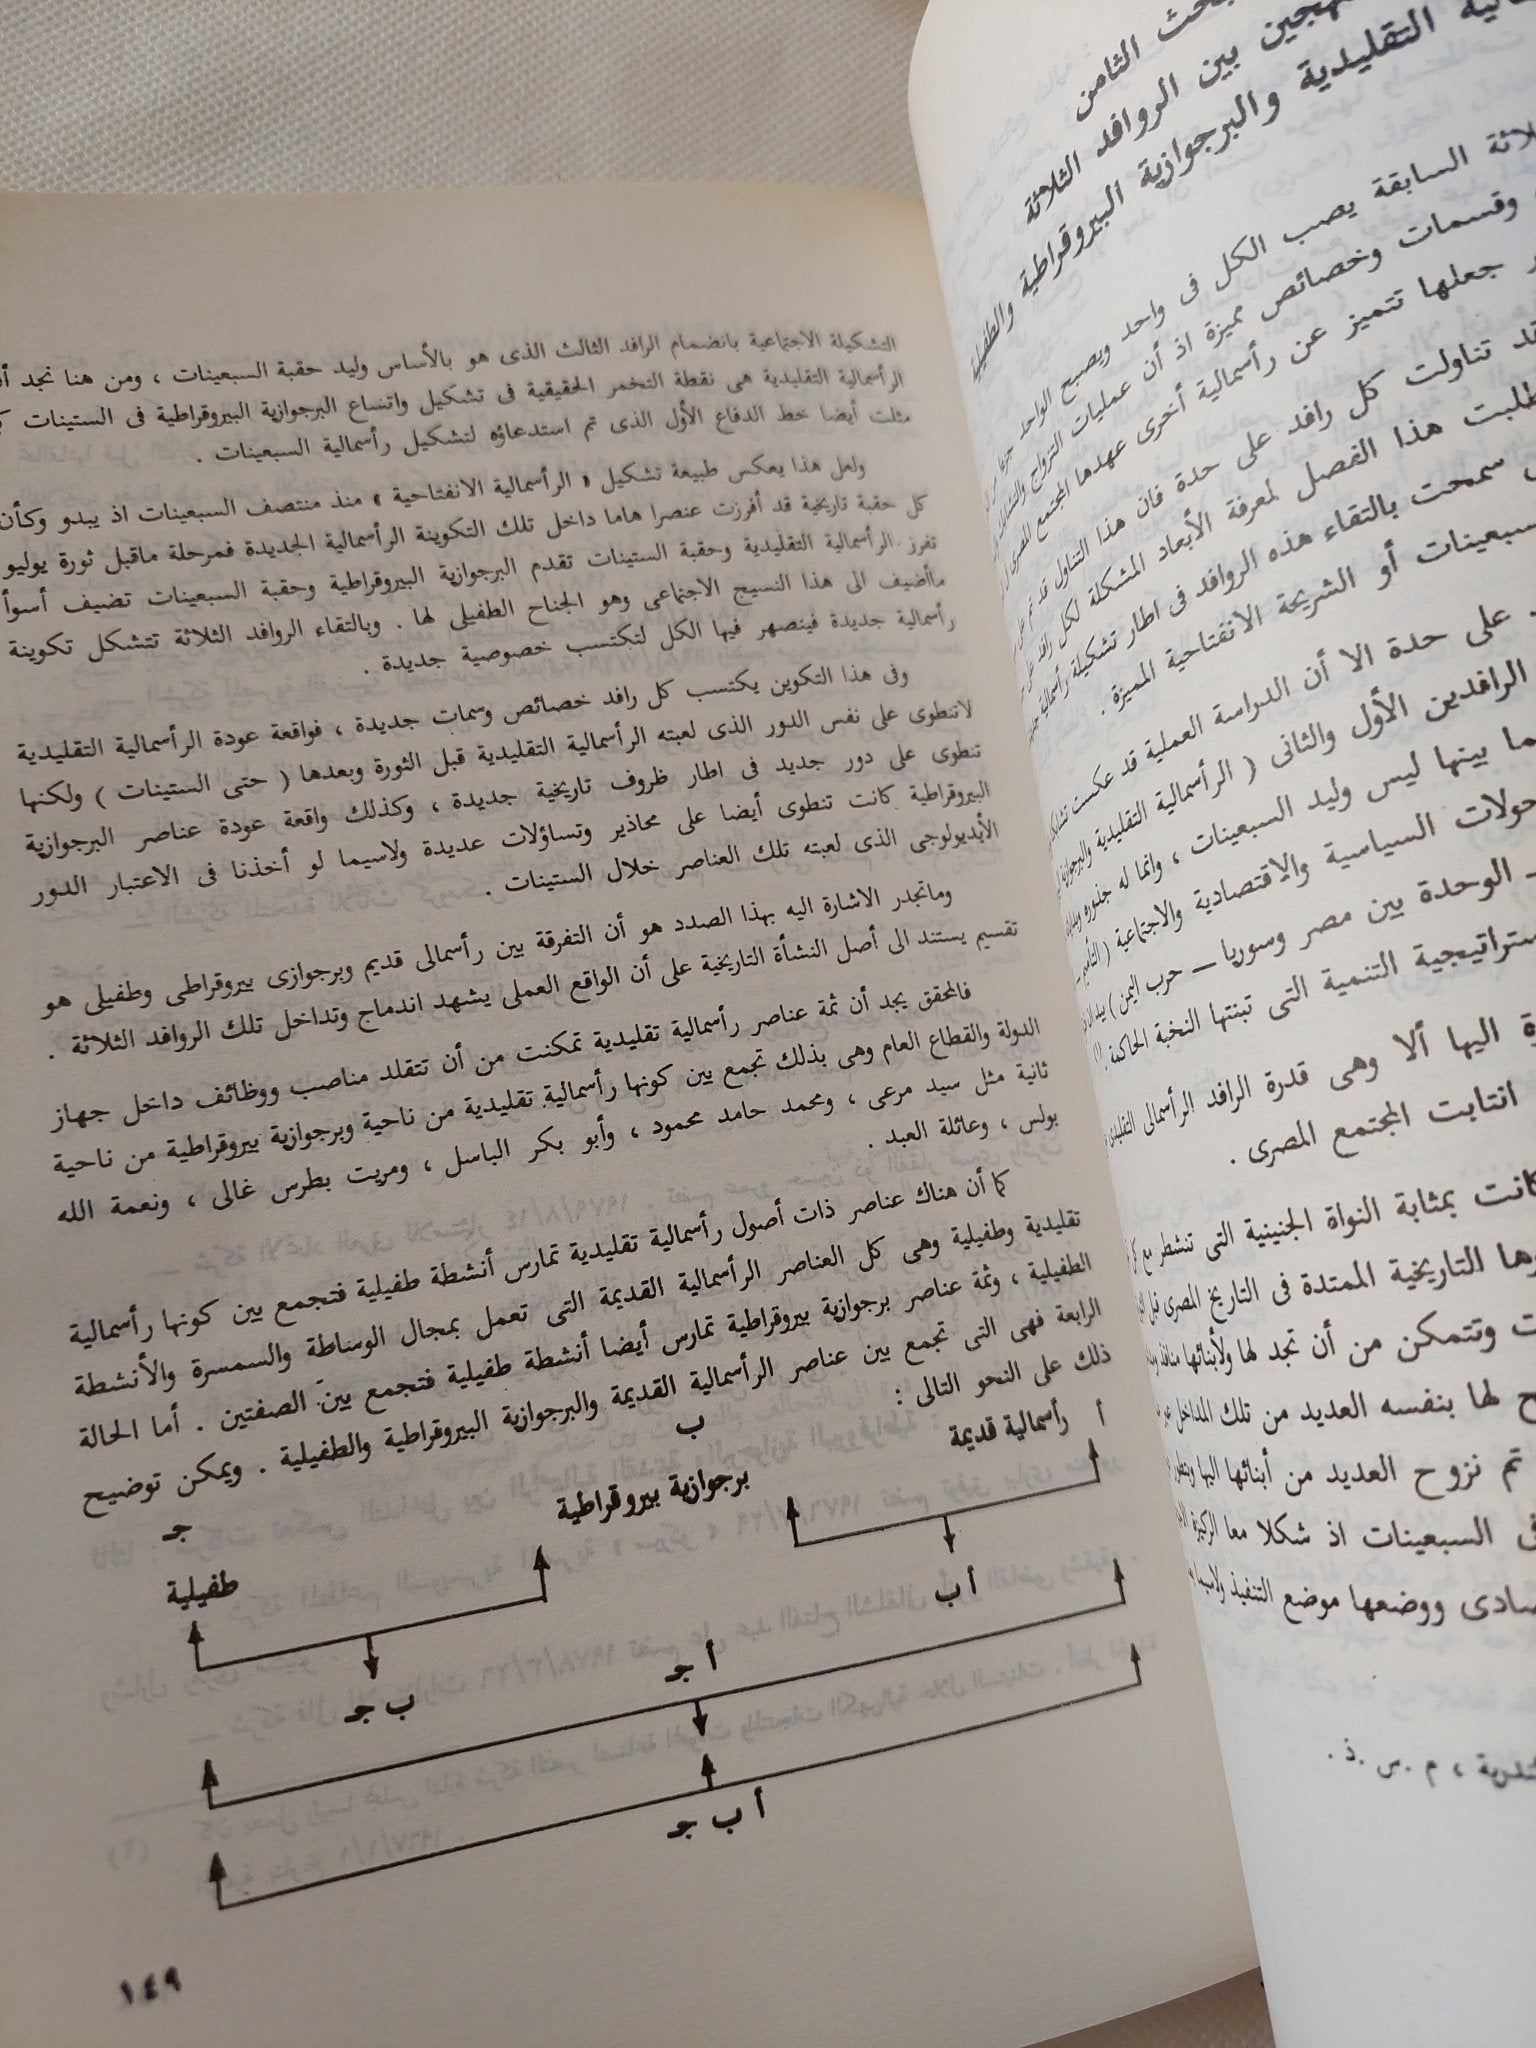 الثامن
بين الروافد الثلاثة
التقليدية والبرجوازية البيروقراطية والطفيلية
السابقة يصب الكل فى واحد ويصبح الواحد
وقسمات وخصائص مميزة اذ أن عمليات التزواج
جعلها تتميز عن رأسمالية أخرى عهدها المجتمع المصرى
تناولت كل رافد على حدة فان هذا التناول قد تم
هذا الفصل لمعرفة الأبعاد المشكلة لكل رافد
سمحت بالتقاء هذه الروافد فى اطار تشكيلة رأسمالية
أو الشريحة الانفتاحية المميزة .
على حدة الا أن الدراسة العملية قد عكست
الرافدين الأول والثانى ( الرأسمالية التقليدية
بينها ليس وليد السبعينات ، وانما له جذوره
السياسية والاقتصادية والاجتماعية
ــ الوحدة بين مصر وسوريا ــ حرب اليمن )
التنمية التى تبنتها النخبة الحاكمة .
اليها ألا وهى قدرة الرافد الرأسمالى
انتابت المجتمع المصرى .
بمثابة النواة الجنينية التى تنشطر مع
التاريخية الممتدة فى التاريخ المصرى قبل
وتتمكن من أن تجد لها ولأبنائها
لها بنفسه العديد من تلك المداخل
تم نزوح العديد من أبنائها اليها
السبعينات اذ شكلا معا الركيزة
ووضعها موضع التنفيذ
، م .س .ذ .
التشكيلة الاجتماعية بانضمام الرافد الثالث الذى هو بالأساس وليد حقبة السبعينات ، ومن هنا نجد
الرأسمالية التقليدية هى نقطة التخمر الحقيقية فى تشكيل واتساع البرجوازية البيروقراطية فى الستينات
مثلت أيضا خط الدفاع الأول الذى تم استدعاؤه لتشكيل رأسمالية السبعينات .
ولعل هذا يعكس طبيعة تشكيل « الرأسمالية الانفتاحية » منذ منتصف السبعينات اذ يبدو وكأن
كل حقبة تاريخية قد أفرزت عنصرا هاما داخل تلك التكوينة الرأسمالية الجديدة فمرحلة ماقبل ثورة يوليو
تفرز الرأسمالية التقليدية وحقبة الستينات تقدم البرجوازية البيروقراطية وحقبة السبعينات تضيف أسوأ
ماأضيف الى هذا النسيج الاجتماعى وهو الجناح الطفيلى لها . وبالتقاء الروافد الثلاثة تتشكل تكوينة
رأسمالية جديدة فينصهر فيها الكل لتكتسب خصوصية جديدة .
وفى هذا التكوين يكتسب كل رافد خصائص وسمات جديدة ، فواقعة عودة الرأسمالية التقليدية
لاتنطوى على نفس الدور الذى لعبته الرأسمالية التقليدية قبل الثورة وبعدها ( حتى الستينات ) ولكنها
تنطوى على دور جديد فى اطار ظروف تاريخية جديدة ، وكذلك واقعة عودة عناصر البرجوازية
البيروقراطية كانت تنطوى أيضا على محاذير وتساؤلات عديدة ولاسيما لو أخذنا فى الاعتبار الدور
الأيديولوجى الذى لعبته تلك العناصر خلال الستينات .
وماتجدر الاشارة اليه بهذا الصدد هو أن التفرقة بين رأسمالى قديم وبرجوازى بيروقراطى وطفيلى هو
تقسيم يستند الى أصل النشأة التاريخية على أن الواقع العملى يشهد اندماج وتداخل تلك الروافد الثلاثة .
فالمحقق يجد أن ثمة عناصر رأسمالية تقليدية تمكنت من أن تتقلد مناصب ووظائف داخل جهاز
الدولة والقطاع العام وهى بذلك تجمع بين كونها رأسمالية تقليدية من ناحية وبرجوازية بيروقراطية من ناحية
ثانية مثل سيد مرعى ، ومحمد حامد محمود ، وأبو بكر الباسل ، ومريت بطرس غالى ، ونعمة الله
بولس ، وعائلة العبد .
كما أن هناك عناصر ذات أصول رأسمالية تقليدية تمارس أنشطة طفيلية فتجمع بين كونها رأسمالية
تقليدية وطفيلية وهى كل العناصر الرأسمالية القديمة التى تعمل بمجال الوساطة والسمسرة والأنشطة
الطفيلية ، وثمة عناصر برجوازية بيروقراطية تمارس أيضا أنشطة طفيلية فتجمع بين الصفتين . أما الحالة
الرابعة فهى التى تجمع بين عناصر الرأسمالية القديمة والبرجوازية البيروقراطية والطفيلية . ويمكن توضيح
ذلك على النحو التالى :
أ رأسمالية قديمة
ب
برجوازية بيروقراطية
جـ
طفيلية
أ ب
ب جـ
أ جـ
أ ب جـ
١٤٩